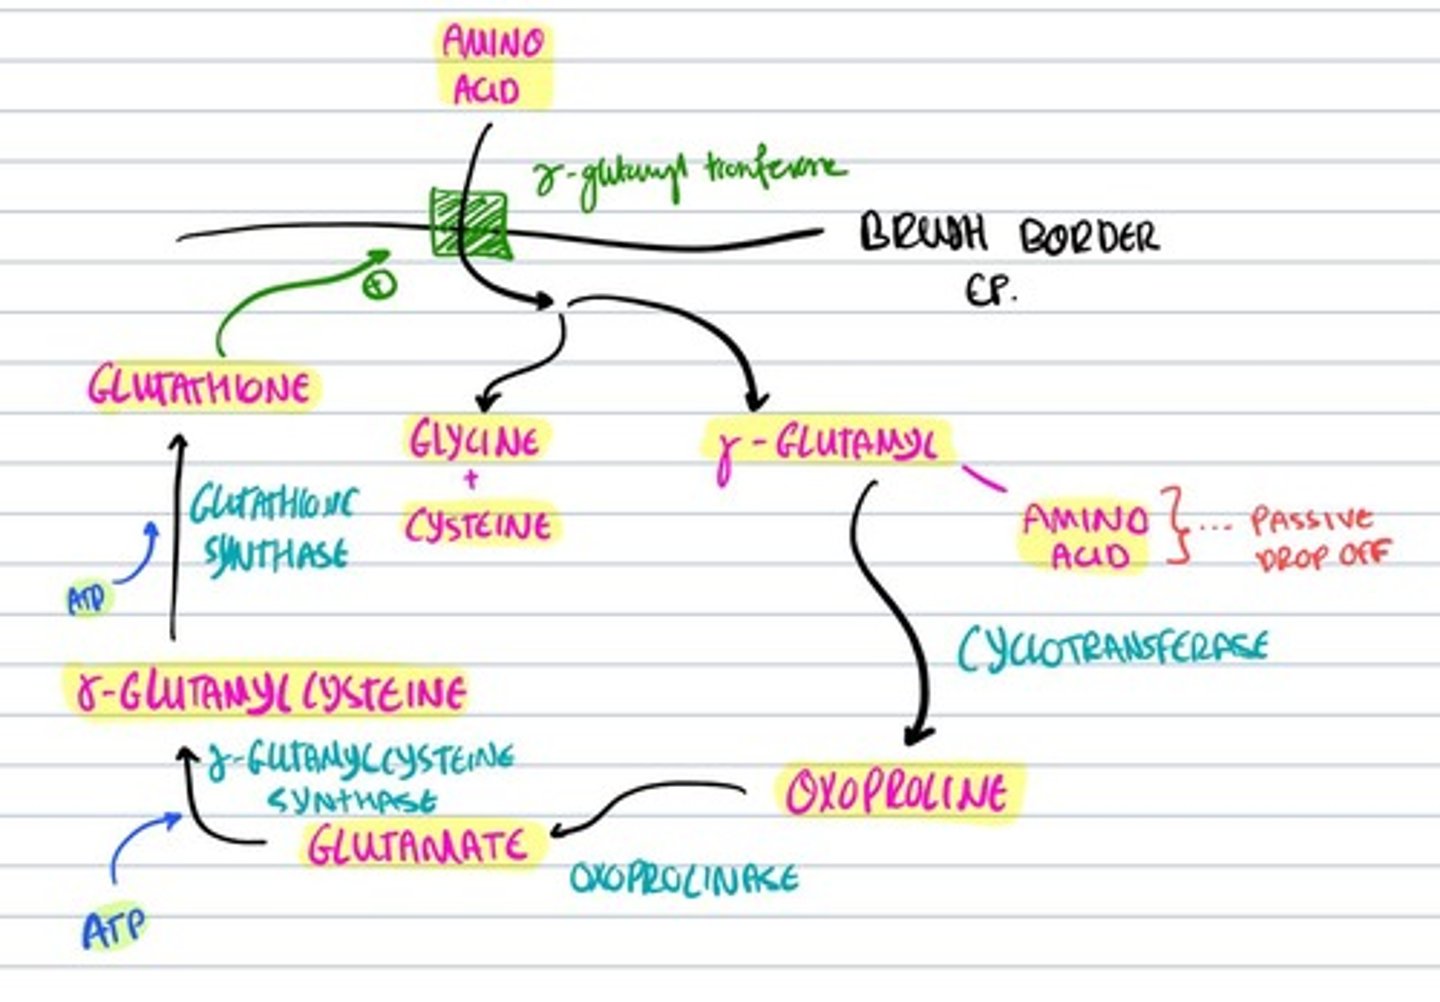 AMINO
ACID
γ-glutamyl tranferase
BRUSH BORDER
EP.
+
GLUTATHIONE
GLYCINE
+
CYSTEINE
γ-GLUTAMYL
AMINO
ACID
... PASSIVE
DROP OFF
GLUTATHIONE
SYNTHASE
ATP
CYCLOTRANSFERASE
γ-GLUTAMYLCYSTEINE
γ-GUTAMYLCYSTEINE
SYNTHASE
OXOPROLINE
GLUTAMATE
OXOPROLINASE
ATP